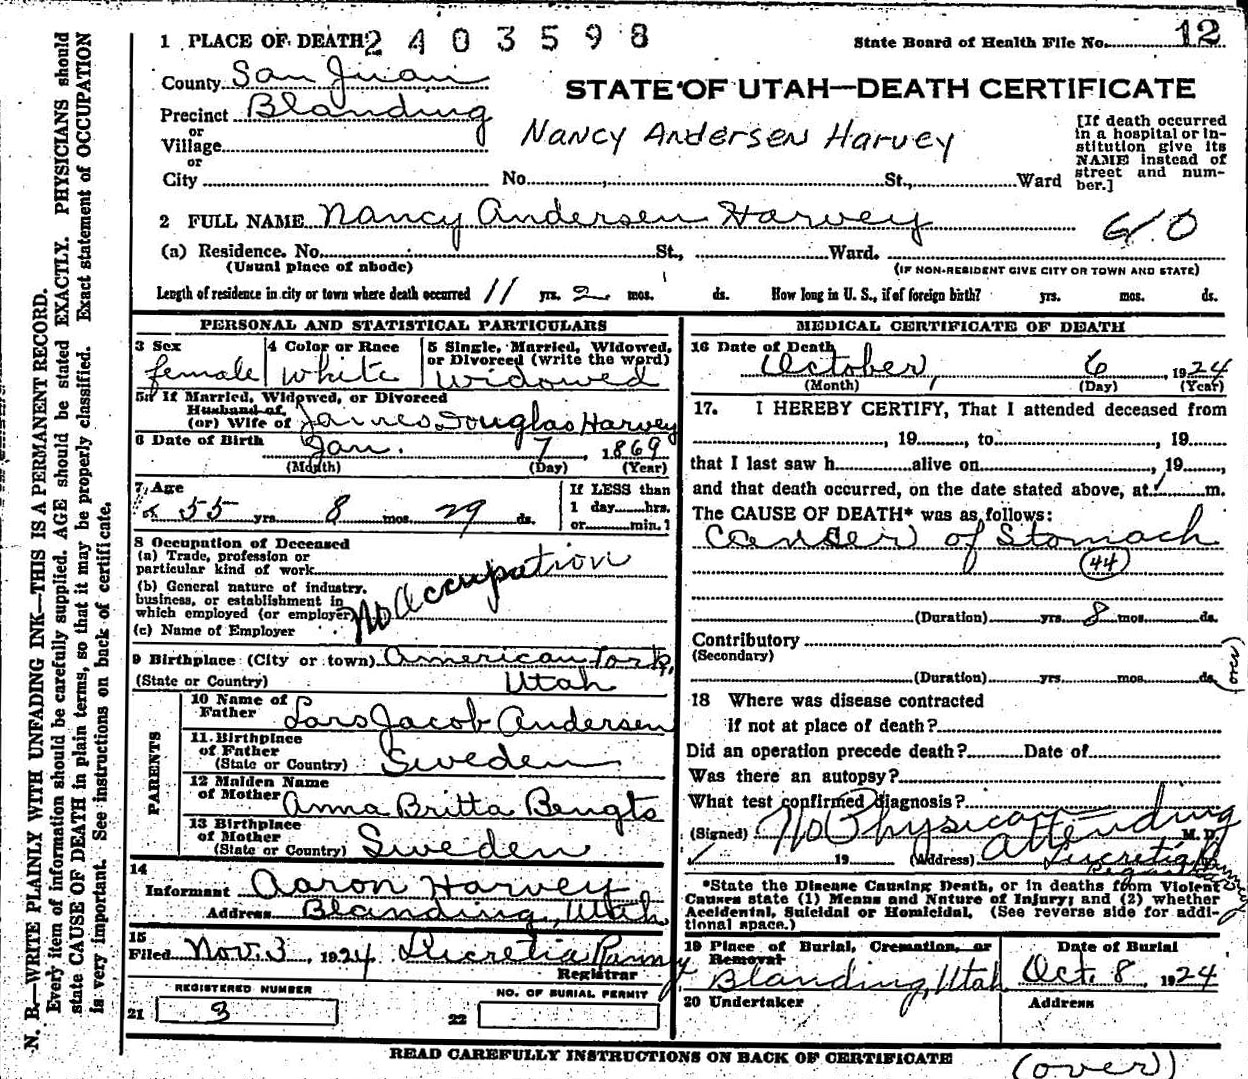 1 PLACE OF DEATH 2403598
State Board of Health File No. 12
County San Juan
STATE OF UTAH—DEATH CERTIFICATE
Precinct Blanding
or
Village
or
City No. St., Ward
Nancy Andersen Harvey
[If death occurred
in a hospital or in-
stitution give its
NAME instead of
street and num-
ber.]
2 FULL NAME Nancy Andersen Harvey
610
(a) Residence. No. St., Ward.
(Usual place of abode) (IF NON-RESIDENT GIVE CITY OR TOWN AND STATE)
Length of residence in city or town where death occurred 11 yrs. 2 mos. ds. How long in U. S., if of foreign birth? yrs. mos. ds.
PERSONAL AND STATISTICAL PARTICULARS
3 Sex
female
4 Color or Race
White
5 Single, Married, Widowed,
or Divorced (write the word)
Widowed
5a If Married, Widowed, or Divorced
Husband of
(or) Wife of James Douglas Harvey
6 Date of Birth
Jan. 7, 1869
(Month) (Day) (Year)
7 Age
55 yrs. 8 mos. 29 ds.
If LESS than
1 day hrs.
or min.1
8 Occupation of Deceased
(a) Trade, profession or
particular kind of work
(b) General nature of industry,
business, or establishment in
which employed (or employer)
(c) Name of Employer
No Occupation
9 Birthplace (City or town) American Fork,
(State or Country) Utah
PARENTS
10 Name of
Father Lars Jacob Andersen
11 Birthplace
of Father
(State or Country) Sweden
12 Maiden Name
of Mother Anna Britta Bengts
13 Birthplace
of Mother
(State or Country) Sweden
14
Informant Aaron Harvey
Address Blanding, Utah
15
Filed Nov. 3, 1924 Lucretia Ranney
Registrar
REGISTERED NUMBER
21 3
NO. OF BURIAL PERMIT
22
MEDICAL CERTIFICATE OF DEATH
16 Date of Death
October, 6, 1924
(Month) (Day) (Year)
17. I HEREBY CERTIFY, That I attended deceased from
, 19 , to , 19
that I last saw h alive on , 19 ,
and that death occurred, on the date stated above, at m.
The CAUSE OF DEATH* was as follows:
Cancer of Stomach
44
(Duration) yrs. 8 mos. ds.
Contributory
(Secondary)
(Duration) yrs. mos. ds.
(over)
18 Where was disease contracted
if not at place of death?
Did an operation precede death? Date of
Was there an autopsy?
What test confirmed diagnosis?
(Signed) No Physican attending M. D.
19 (Address) Lucretia Ranney
*State the Disease Causing Death, or in deaths from Violent
Causes state (1) Means and Nature of Injury; and (2) whether
Accidental, Suicidal or Homicidal. (See reverse side for addi-
tional space.)
19 Place of Burial, Cremation, or
Removal
Blanding, Utah
Date of Burial
Oct. 8, 1924
20 Undertaker
Address
READ CAREFULLY INSTRUCTIONS ON BACK OF CERTIFICATE
(over)
N. B.—WRITE PLAINLY WITH UNFADING INK—THIS IS A PERMANENT RECORD.
Every item of information should be carefully supplied. AGE should be stated EXACTLY. PHYSICIANS should
state CAUSE OF DEATH in plain terms, so that it may be properly classified. Exact statement of OCCUPATION
is very important. See instructions on back of certificate.